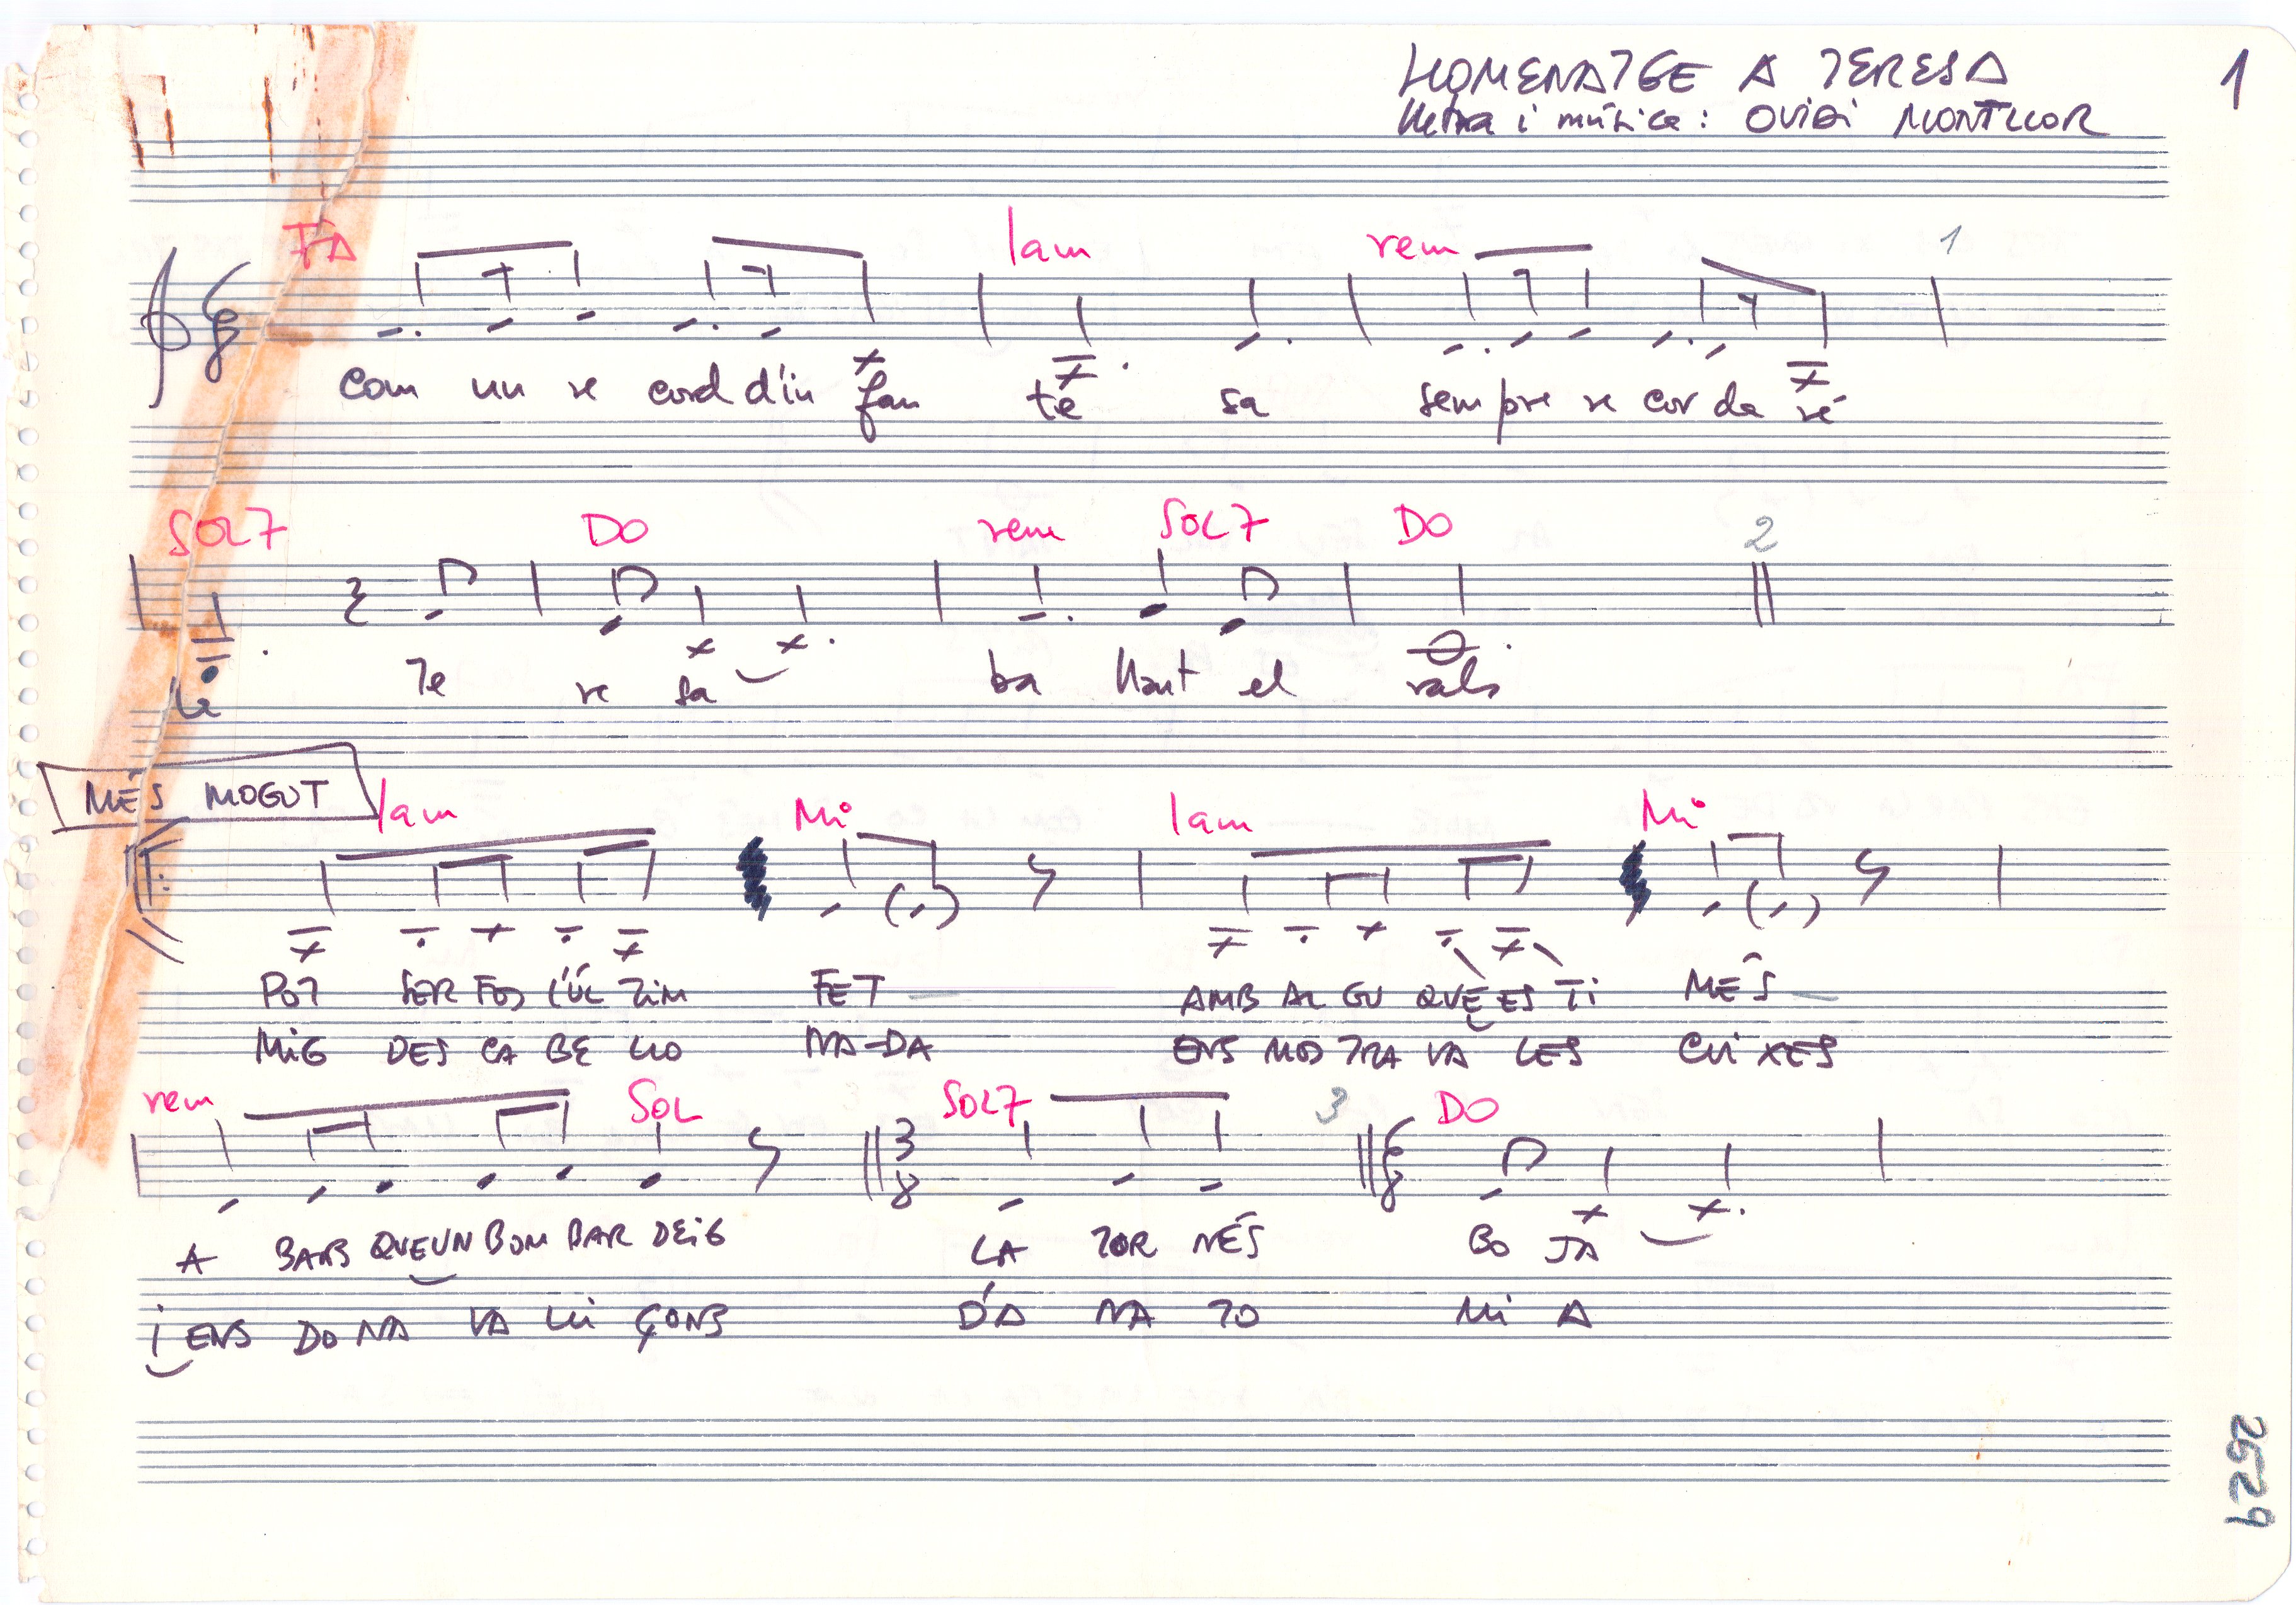 HOMENATGE A TERESA 1
Lletra i música: OVIDI MONTLLOR
FA lam rem 1
6 8
com un re cord d'in fan te sa sem pre re cor da ré
SOL7 DO rem SOL7 DO 2
la Te re sa ba llant el vals
MÉS MOGUT
lam Mi lam Mi
POT SER FOS L'ÚL TIM FET AMB AL GU QUE ES TI MÉS
MIG DES CA BE LLO NA-DA ENS MOS TRA VA LES CUI XES
rem SOL SOL7 3 DO
3 8 6 8
A BANS QUE UN BOM BAR DEIG LA TOR NÉS BO JA
I ENS DO NA VA LLI ÇONS D'A NA TO MI A
2529